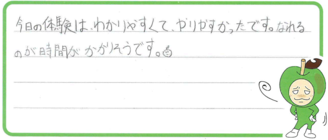 今日の体験は、わかりやすくて、やりやすかったです。なれる
のが時間がかかりそうです。